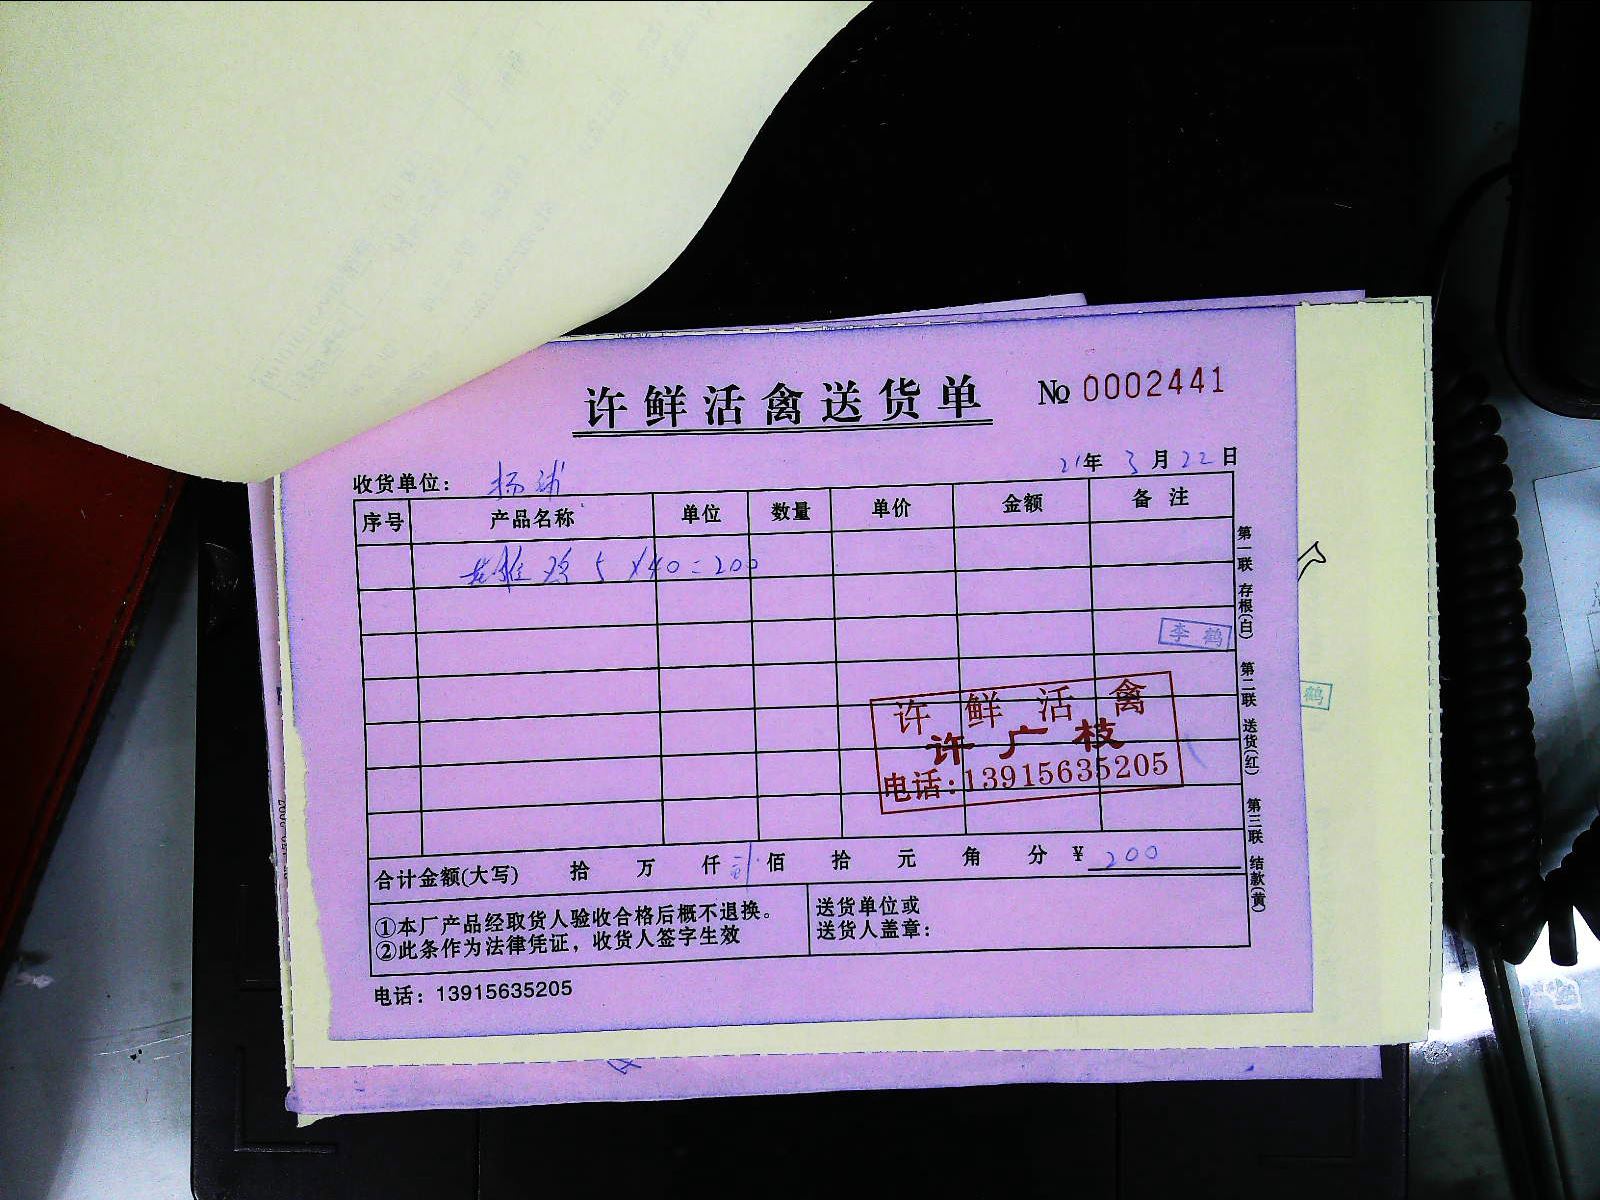 许鲜活禽送货单 № 0002441
收货单位： 杨球 21年 3月 22日
序号 产品名称 单位 数量 单价 金额 备注
鸡 5 ×40=200
李鹤
鹤
许鲜活禽
许广枝
电话:13915635205
合计金额(大写) 拾 万 仟 贰佰 拾 元 角 分 ¥ 200
①本厂产品经取货人验收合格后概不退换。
②此条作为法律凭证，收货人签字生效
送货单位或
送货人盖章：
电话：13915635205
第一联 存根(白) 第二联 送货(红) 第三联 结款(黄)